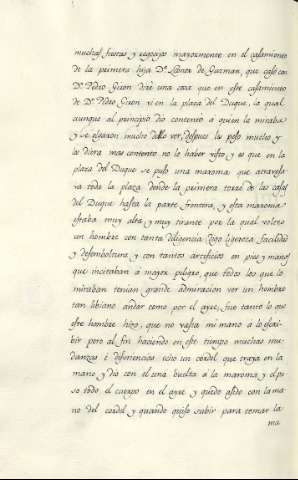 muchas fiestas y regozijos mayormente en el casamiento
de la primera hija D.ª Leonor de Guzman, que caso con
D.ⁿ Pedro Giron diré una cosa que en este casamiento
de D.ⁿ Pedro Giron vi en la plaza del Duque, la qual
aunque al principio dio contento a quien la miraba
y se olgaron mucho de lo ver, despues les peso mucho y
les diera mas contento no lo haber visto y es que en la
plaza del Duque se puso una maroma que atravesa
va toda la plaza desde la primera torre de las casas
del Duque hasta la parte frontera, y esta maroma
estaba muy alta y muy tirante por la qual
un hombre con tanta diligencia ligereza facilidad
y desemboltura, y con tantos artificios en pies y manos
que incitaban a mayor peligro, que todos los que lo
miraban tenian grande admiracion ver un hombre
tan libiano andar como por el ayre, fue tanto lo que
este hombre hizo, que no basta mi mano a lo escri-
bir pero al fin haciendo en este tiempo muchas mu-
danzas e diferencias echo un cordel que traya en la
mano y dio con el una buelta a la maroma y el pu
so todo el cuerpo en el ayre y quedo asido con la ma
no del cordel y quando quiso subir para tomar la
ma